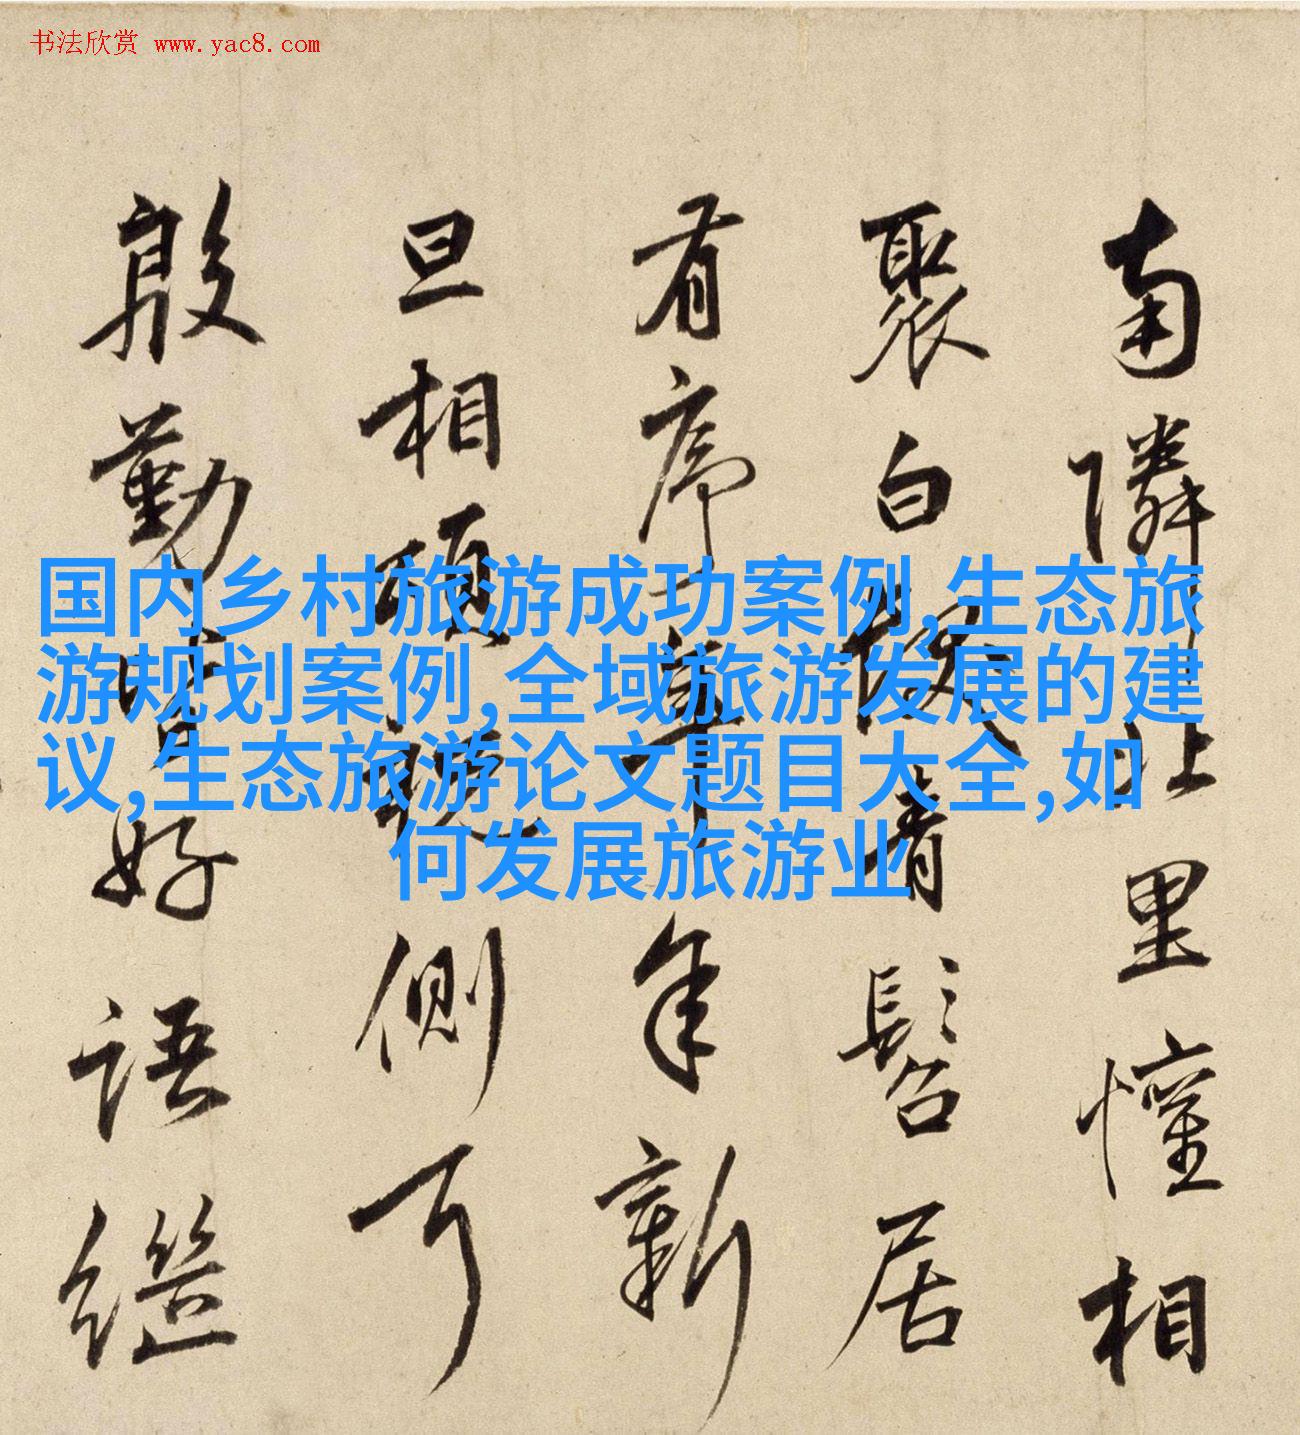 书法欣赏 www.yac8.com
南隣北里懽相
聚白青髫居
有序年新
旦相側耳
殷勤好語繼
国内乡村旅游成功案例,生态旅
游规划案例,全域旅游发展的建
议,生态旅游论文题目大全,如
何发展旅游业